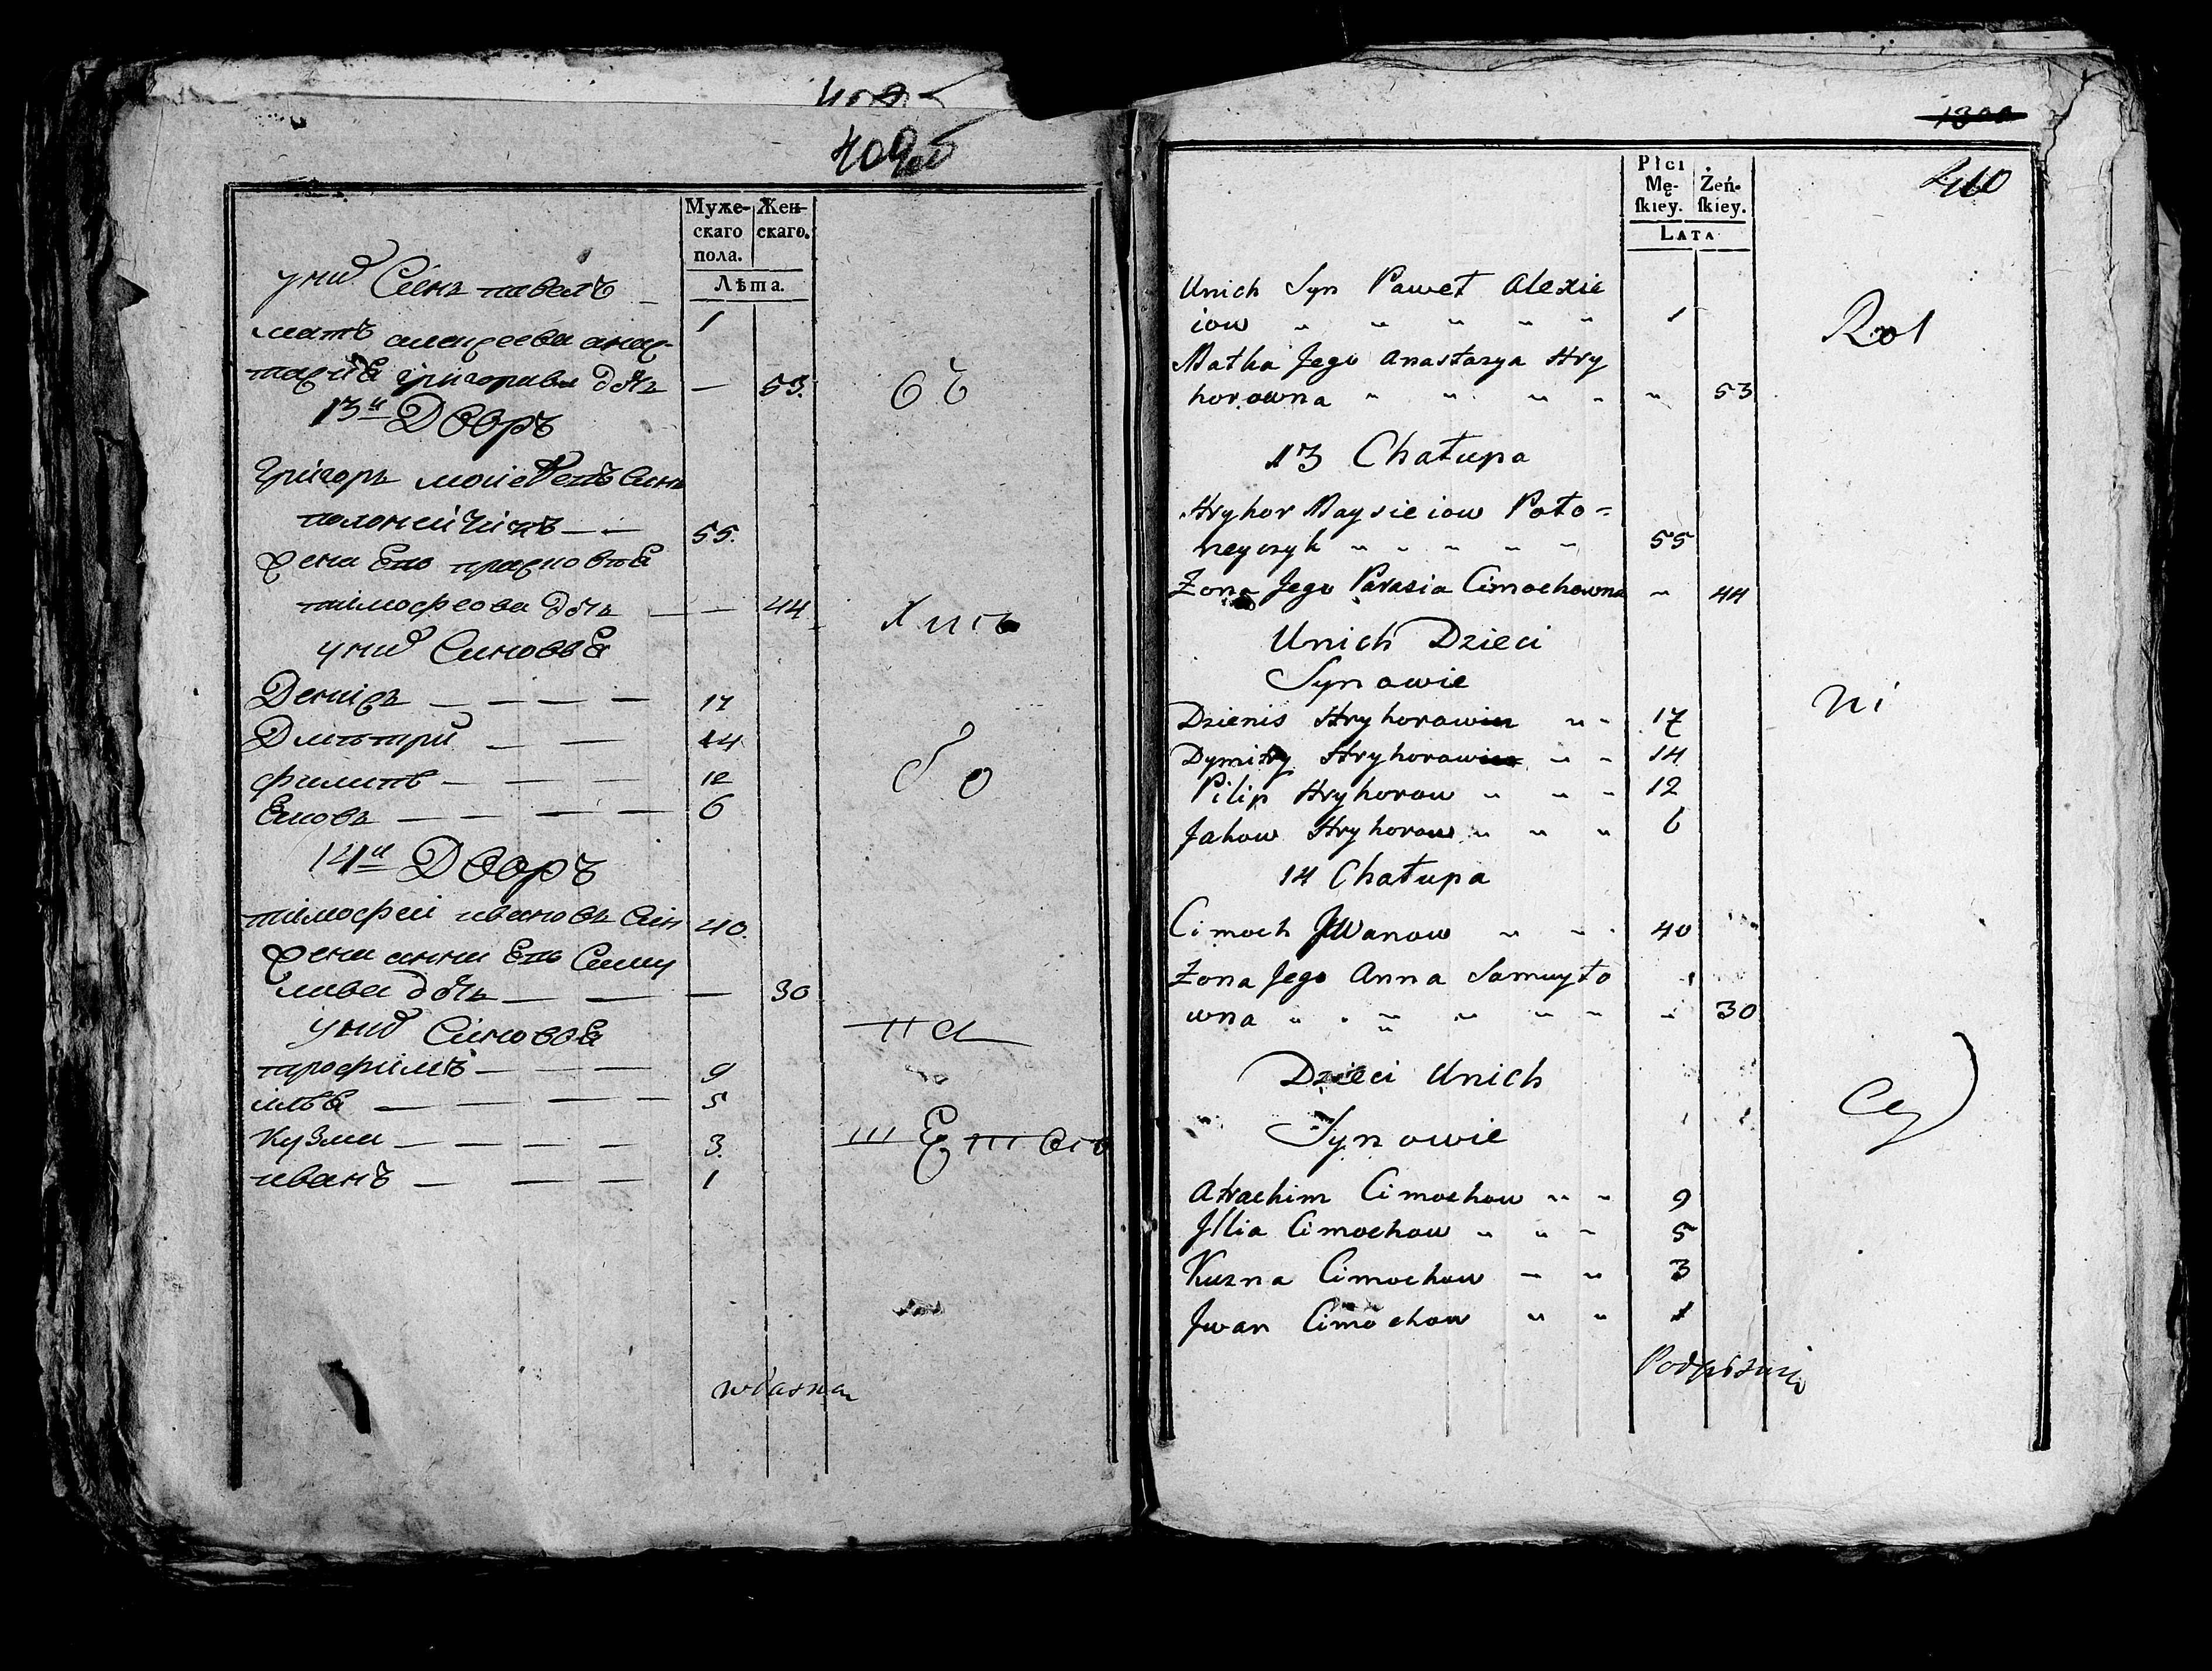 409об
Муже- Жен-
скаго скаго.
пола.
Лѣта.
у них Синъ павелъ 1
мать алексеева анас-
тасия григорива дочь — 53.
13й Дворъ
Григоръ моисеевъ Синъ
полонейчикъ — — 55.
жена Ево прасковья
тимофеова дочь — — 44
у них Синовья
Денисъ — — — — 17
Дмитрий — — 14
филипъ — — — 12
Еаковъ — — — — 6
14й Дворъ
тимофей ивановъ Син 40.
жена анна Ево Саму
лова дочь — — — 30
у них Синовья
трофимъ — — — 9
илья — — — — 5
Кузма — — — — 3.
иванъ — — — 1
własna
1300
410
Płci
Mę- Żeń-
skiey. skiey.
LATA
Unich Syn Paweł Alexie
iow 1
Matka Jego Anastazya Hry
horowna 53
13 Chałupa
Hryhor Maysieiow Poło-
neyczyk 55
Żona Jego Parasia Cimochowna 44
Unich Dzieci
Synowie
Dzienis Hryhorow 17
Dymitry Hryhorow 14
Pilip Hryhorow 12
Jakow Hryhorow 6
14 Chałupa
Cimoch Jwanow 40
Żona Jego Anna Samuyło
wna 30
Dzieci Unich
Synowie
Atrachim Cimochow 9
Jllia Cimochow 5
Kuzna Cimochow 3
Jwan Cimochow 1
Rol
ni
cy